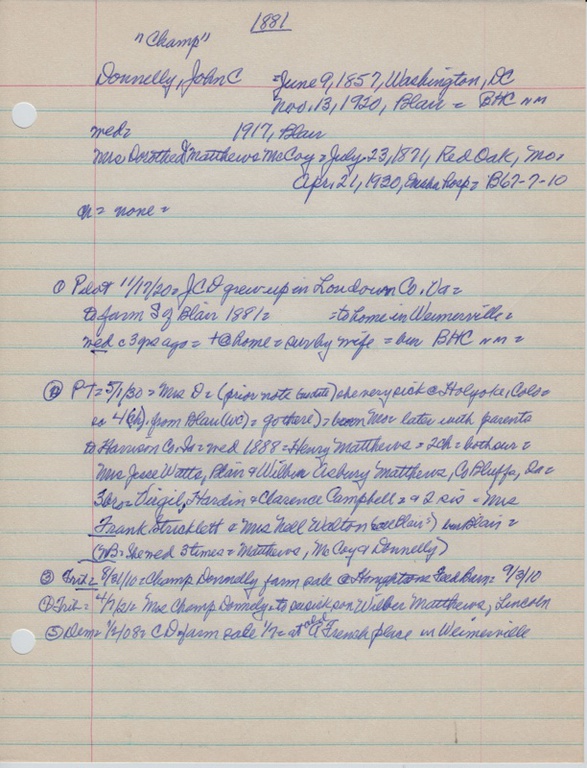 1881
"Champ"
Donnelly, John C = June 9, 1857, Washington, DC
Nov. 13, 1920, Blair = BHC nm
med = 1917, Blair
Mrs Matthews McCoy = July 23, 1871, Red Oak, Mo =
Apr. 21, 1930, Hosp = B67-7-10
ch = none =
① Pilot 11/17/20 = JCD grew up in Loudown Co. Va =
to farm S of Blair 1881 = = to home in Weimerville =
med c 3 yrs ago = + @ home = sur by wife = bur BHC nm =
② PT = 5/1/30 = Mrs D = (prior note ) she very sick @ Holyoke, Colo =
so 4 ch. from Blair (WC) = go there) = born Mo = later with parents
to Harrison Co. Ia = med 1888 = Henry Matthews = 2 ch = both sur =
Mrs Jesse Watts, Blair & Wilbur Asbury Matthews, Co Bluffs, Ia =
3 bro = Virgil, Hardin & Clarence Campbell = & 2 sis = Mrs
Frank Stricklett & Mrs Nell Walton Blair =
(NB = She wed 3 times = Matthews, McCoy & Donnelly)
③ Trib = 8/31/10 = Champ Donnelly farm sale @ Feed Barn = 9/3/10
④ Trib = Mrs Champ Donnelly = to see sick son Wilber Matthews, Lincoln
⑤ Dem = 1/2/08 = CD farm sale 1/7 = at old A French place in Weimerville